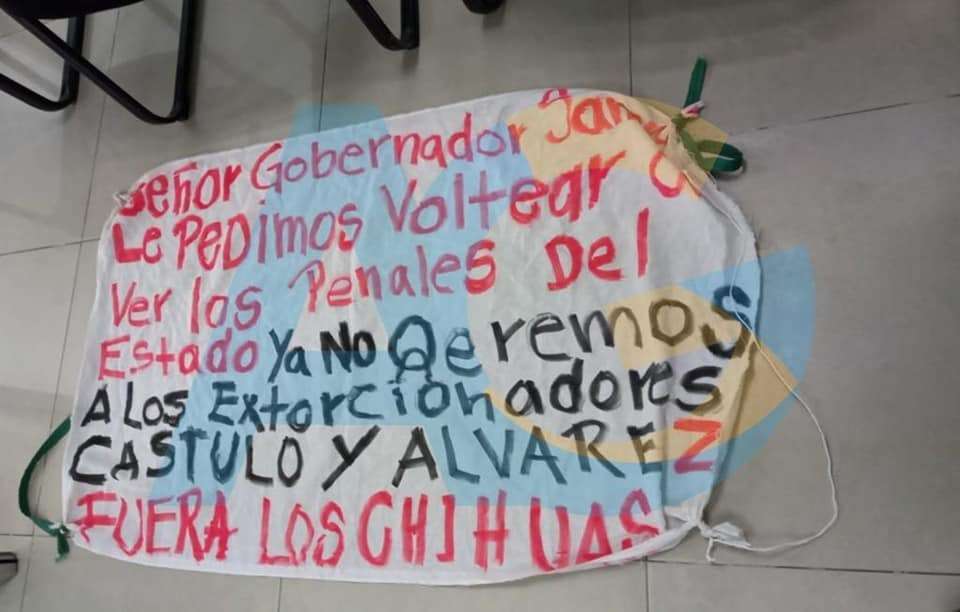 Señor Gobernador
Le PeDimos Voltear a
Ver los Penales Del
Estado Ya No Qeremos
A Los Extorcionadores
CASTULO Y ALVAREZ
FUERA LOS CHIHUAS